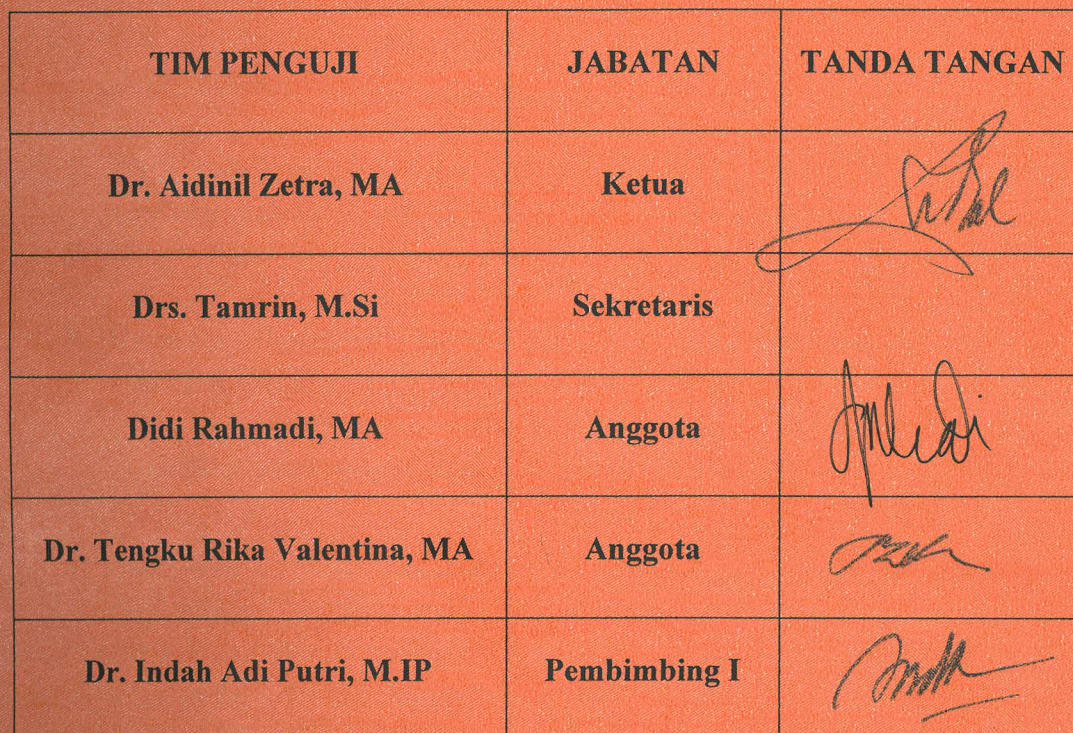 TIM PENGUJI JABATAN TANDA TANGAN
Dr. Aidinil Zetra, MA Ketua
Drs. Tamrin, M.Si Sekretaris
Didi Rahmadi, MA Anggota
Dr. Tengku Rika Valentina, MA Anggota
Dr. Indah Adi Putri, M.IP Pembimbing I